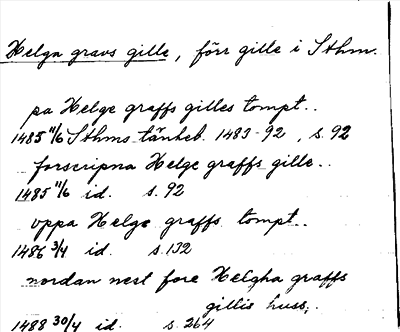 Helga gravs gille, förr gille i Sthm.
pa Helge graffs gilles tompt..
1485 11/6 Sthms tänkeb. 1483-92, s. 92
forscripna Helge graffs gille..
1485 11/6 id. s. 92
vppa Helge graffs tompt..
1486 3/4 id. s. 132
nordan nest fore Helgha graffs
gillis huss,.
1488 30/4 id. s. 264